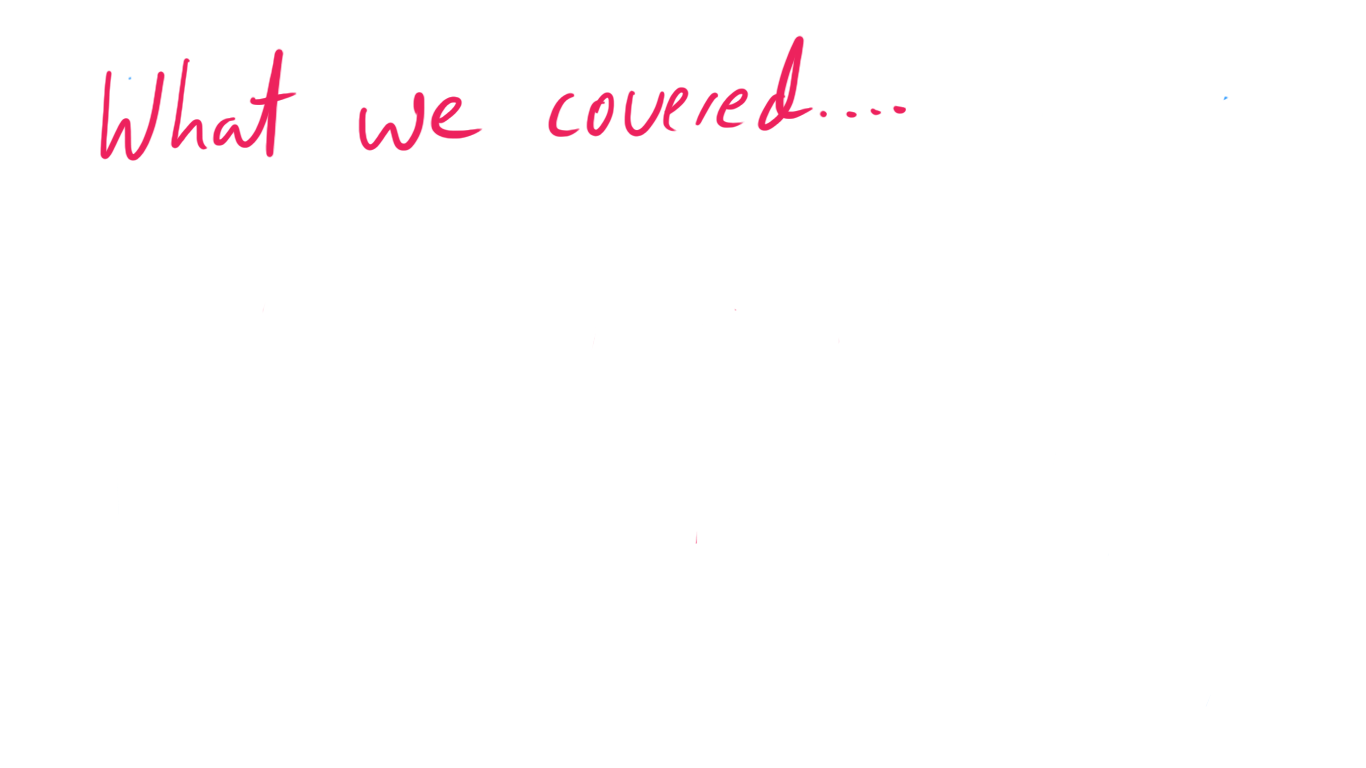 What we covered....